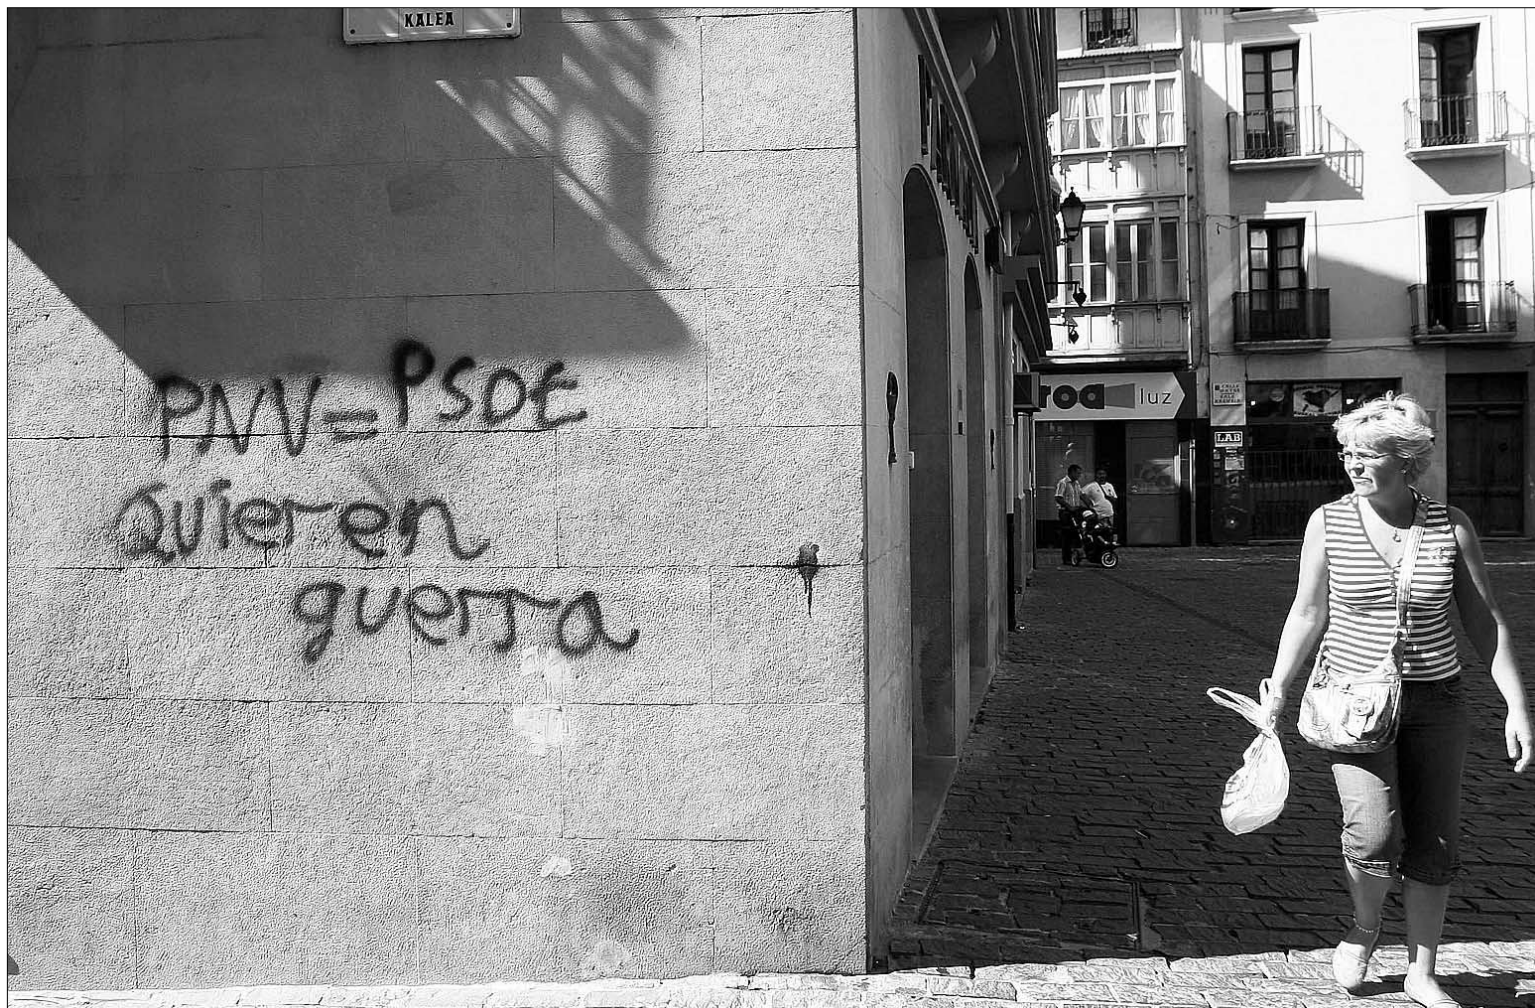 KALEA
PNV=PSOE
quieren
guerra
roa luz
LAB